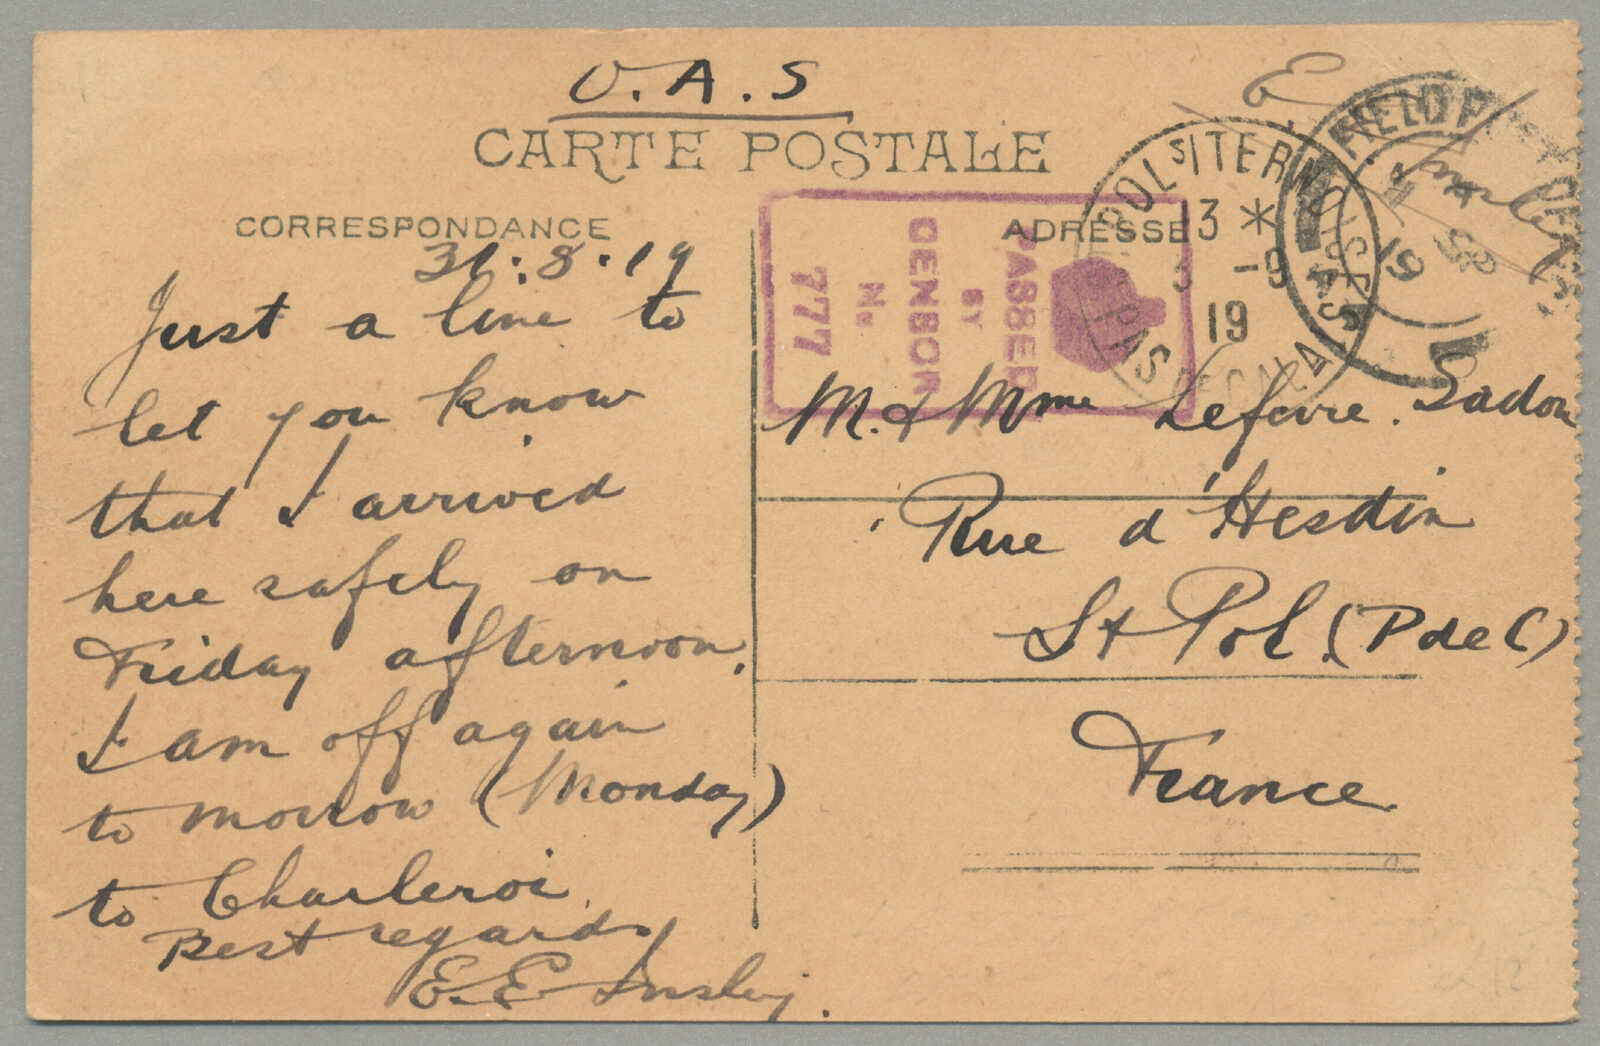 O.A.S
CARTE POSTALE
CORRESPONDANCE
31.8.19
Just a line to
let you know
that I arrived
here safely on
Friday afternoon.
I am off again
to morrow (Monday)
to Charleroi.
Best regards
E. E. Insley.
ADRESSE
PASSED
BY
CENSOR
No
777
13 *
3 -9
19
FIELD
19
M. & Mme Lefevre. Sadon
Rue d'Hesdin
St Pol. (P de C)
France